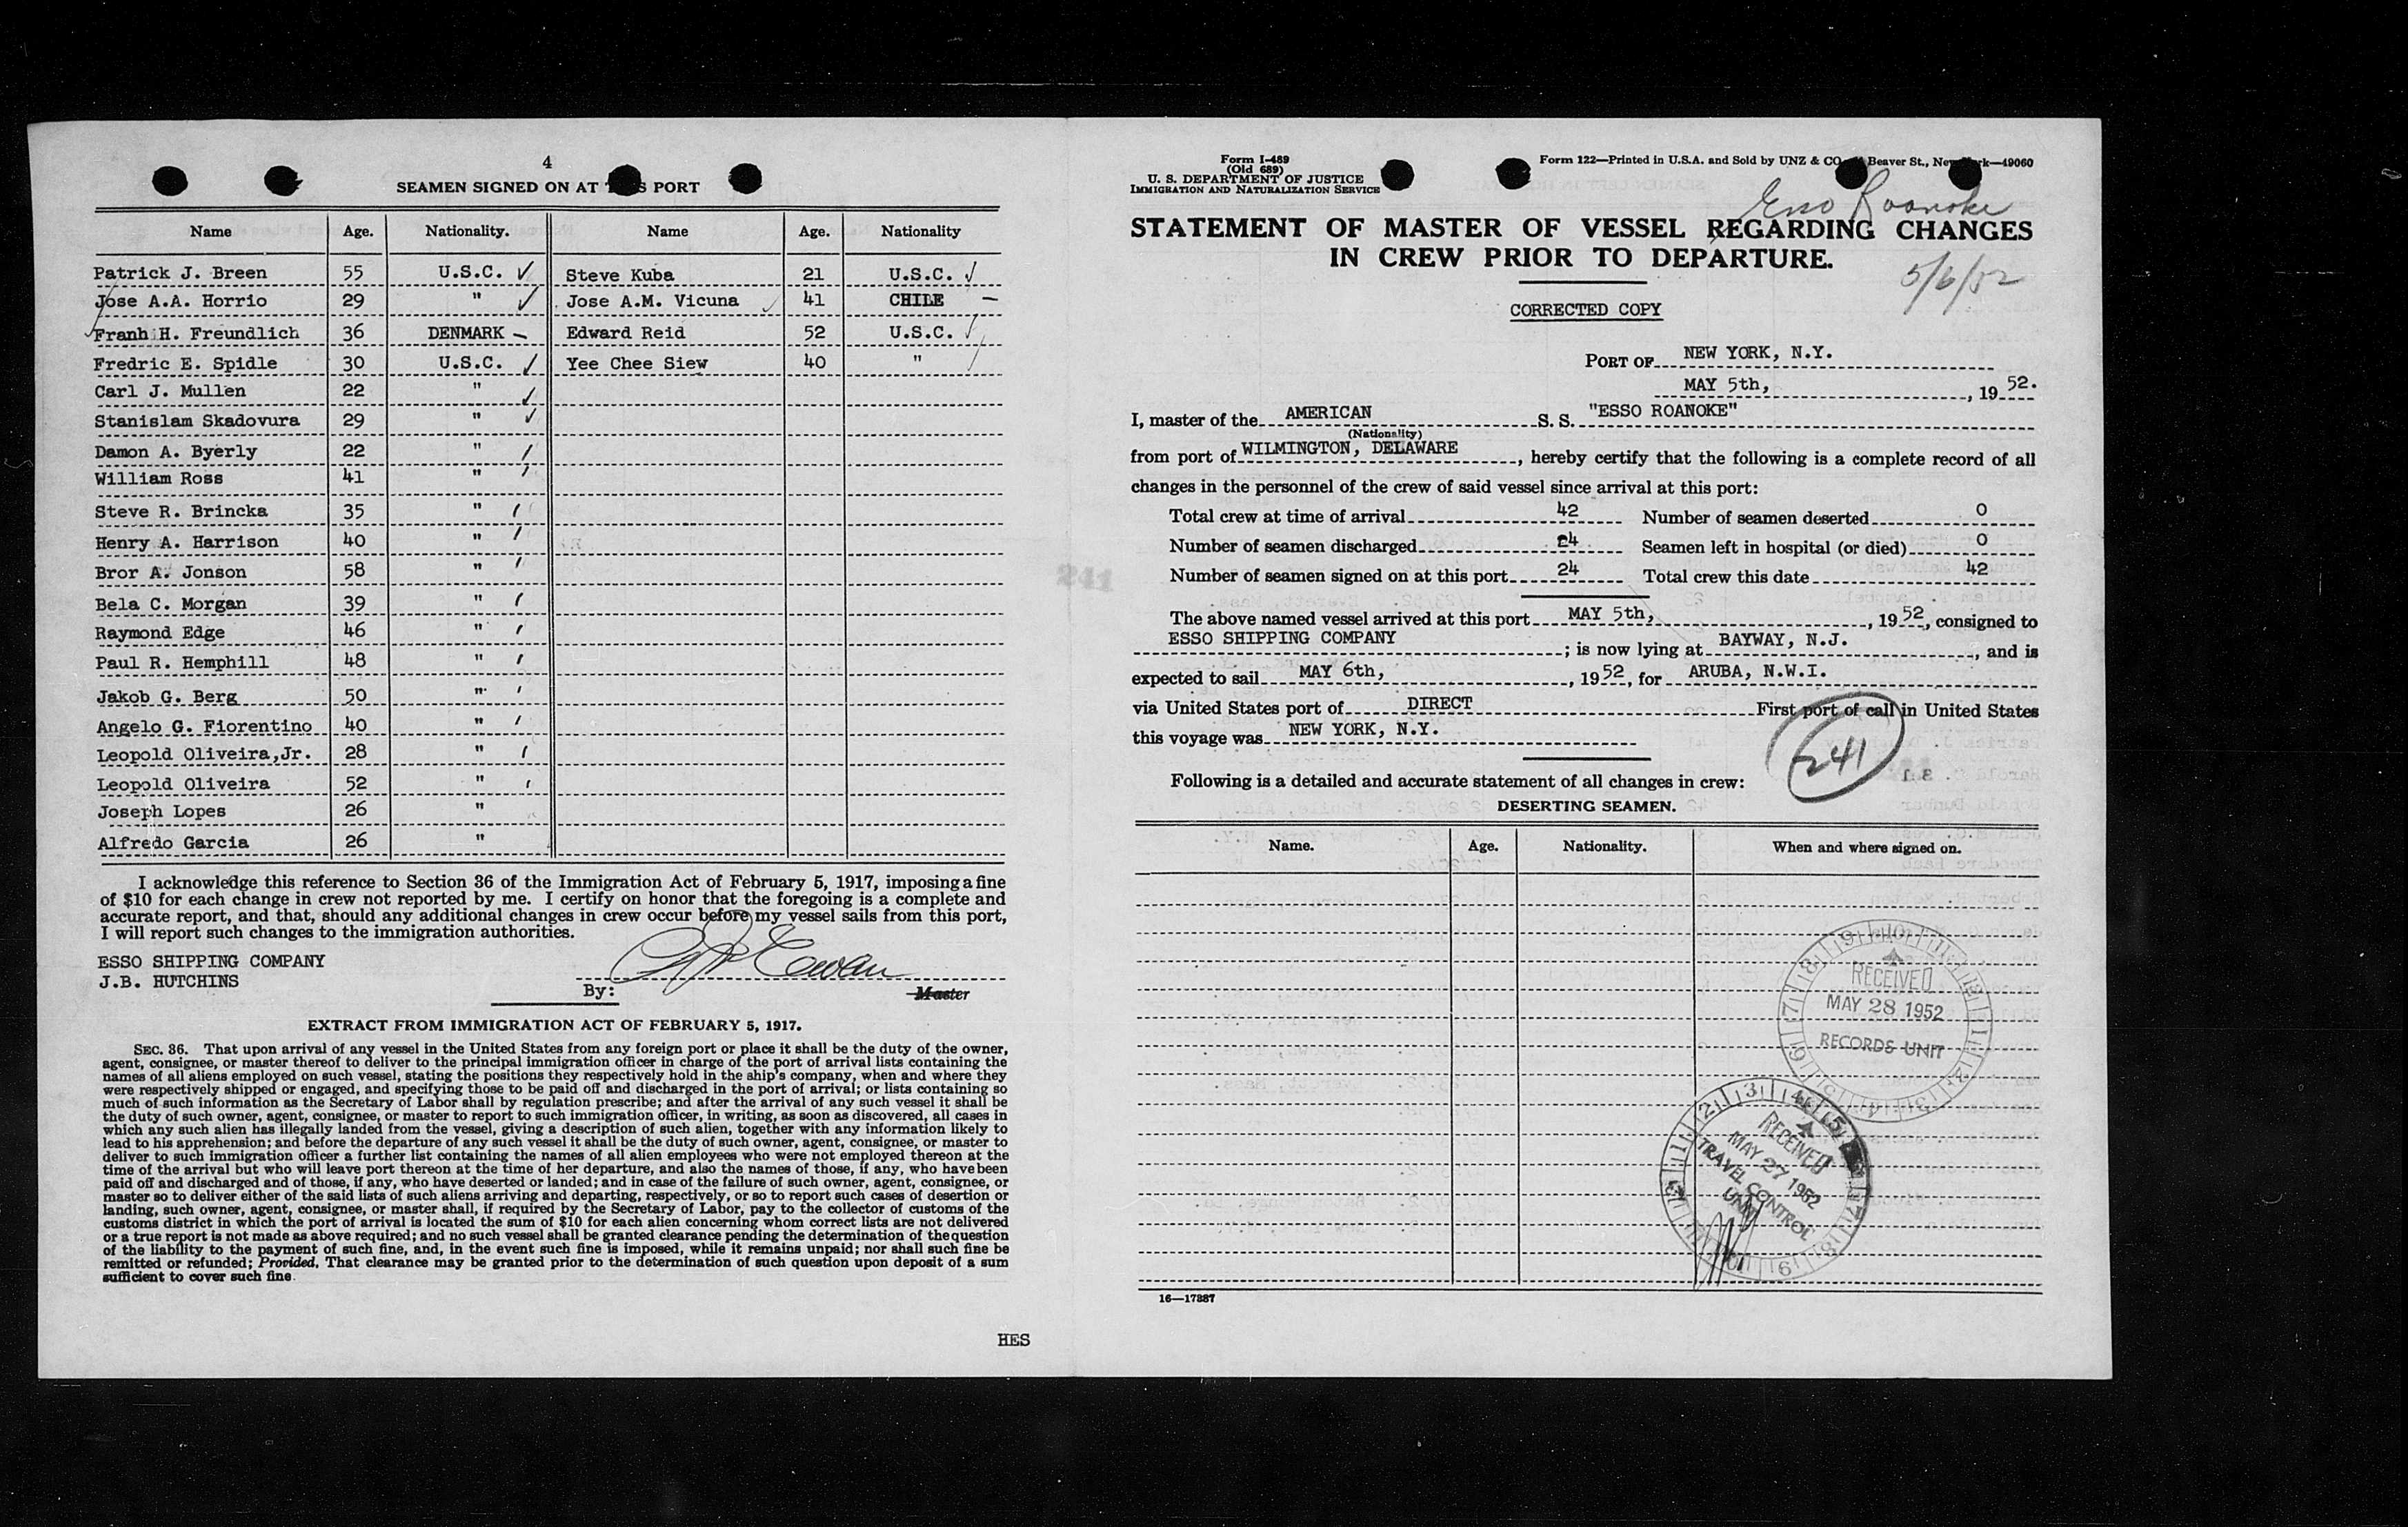 4
SEAMEN SIGNED ON AT PORT
Name Age. Nationality. Name Age. Nationality
Patrick J. Breen 55 U.S.C. ✓ Steve Kuba 21 U.S.C. ✓
Jose A.A. Horrio 29 " ✓ Jose A.M. Vicuna ✓ 41 CHILE —
Franh H. Freundlich 36 DENMARK — Edward Reid 52 U.S.C. ✓
Fredric E. Spidle 30 U.S.C. ✓ Yee Chee Siew 40 "
Carl J. Mullen 22 " ✓
Stanislam Skadovura 29 " ✓
Damon A. Byerly 22 "
William Ross 41 "
Steve R. Brincka 35 "
Henry A. Harrison 40 "
Bror A. Jonson 58 "
Bela C. Morgan 39 "
Raymond Edge 46 "
Paul R. Hemphill 48 "
Jakob G. Berg 50 "
Angelo G. Fiorentino 40 "
Leopold Oliveira,Jr. 28 "
Leopold Oliveira 52 "
Joseph Lopes 26 "
Alfredo Garcia 26 "
I acknowledge this reference to Section 36 of the Immigration Act of February 5, 1917, imposing a fine
of $10 for each change in crew not reported by me. I certify on honor that the foregoing is a complete and
accurate report, and that, should any additional changes in crew occur before my vessel sails from this port,
I will report such changes to the immigration authorities.
ESSO SHIPPING COMPANY
J.B. HUTCHINS
By:
Master
EXTRACT FROM IMMIGRATION ACT OF FEBRUARY 5, 1917.
SEC. 36. That upon arrival of any vessel in the United States from any foreign port or place it shall be the duty of the owner,
agent, consignee, or master thereof to deliver to the principal immigration officer in charge of the port of arrival lists containing the
names of all aliens employed on such vessel, stating the positions they respectively hold in the ship's company, when and where they
were respectively shipped or engaged, and specifying those to be paid off and discharged in the port of arrival; or lists containing so
much of such information as the Secretary of Labor shall by regulation prescribe; and after the arrival of any such vessel it shall be
the duty of such owner, agent, consignee, or master to report to such immigration officer, in writing, as soon as discovered, all cases in
which any such alien has illegally landed from the vessel, giving a description of such alien, together with any information likely to
lead to his apprehension; and before the departure of any such vessel it shall be the duty of such owner, agent, consignee, or master to
deliver to such immigration officer a further list containing the names of all alien employees who were not employed thereon at the
time of the arrival but who will leave port thereon at the time of her departure, and also the names of those, if any, who have been
paid off and discharged and of those, if any, who have deserted or landed; and in case of the failure of such owner, agent, consignee, or
master so to deliver either of the said lists of such aliens arriving and departing, respectively, or so to report such cases of desertion or
landing, such owner, agent, consignee, or master shall, if required by the Secretary of Labor, pay to the collector of customs of the
customs district in which the port of arrival is located the sum of $10 for each alien concerning whom correct lists are not delivered
or a true report is not made as above required; and no such vessel shall be granted clearance pending the determination of the question
of the liability to the payment of such fine, and, in the event such fine is imposed, while it remains unpaid; nor shall such fine be
remitted or refunded; Provided, That clearance may be granted prior to the determination of such question upon deposit of a sum
sufficient to cover such fine.
HES
241
Form I-489
(Old 689)
U. S. DEPARTMENT OF JUSTICE
IMMIGRATION AND NATURALIZATION SERVICE
Form 122—Printed in U.S.A. and Sold by UNZ & CO. Beaver St., New York—49060
Esso Roanoke
STATEMENT OF MASTER OF VESSEL REGARDING CHANGES
IN CREW PRIOR TO DEPARTURE.
5/6/52
CORRECTED COPY
PORT OF NEW YORK, N.Y.
MAY 5th, , 1952.
I, master of the AMERICAN S. S. "ESSO ROANOKE"
(Nationality)
from port of WILMINGTON, DELAWARE , hereby certify that the following is a complete record of all
changes in the personnel of the crew of said vessel since arrival at this port:
Total crew at time of arrival 42 Number of seamen deserted 0
Number of seamen discharged 24 Seamen left in hospital (or died) 0
Number of seamen signed on at this port 24 Total crew this date 42
The above named vessel arrived at this port MAY 5th, , 1952, consigned to
ESSO SHIPPING COMPANY ; is now lying at BAYWAY, N.J. , and is
expected to sail MAY 6th, , 1952, for ARUBA, N.W.I.
via United States port of DIRECT First port of call in United States
this voyage was NEW YORK, N.Y.
241
Following is a detailed and accurate statement of all changes in crew:
DESERTING SEAMEN.
Name. Age. Nationality. When and where signed on.
RECEIVED
MAY 28 1952
RECORDS UNIT
RECEIVED
MAY 27 1952
TRAVEL CONTROL
UNIT
16—17887